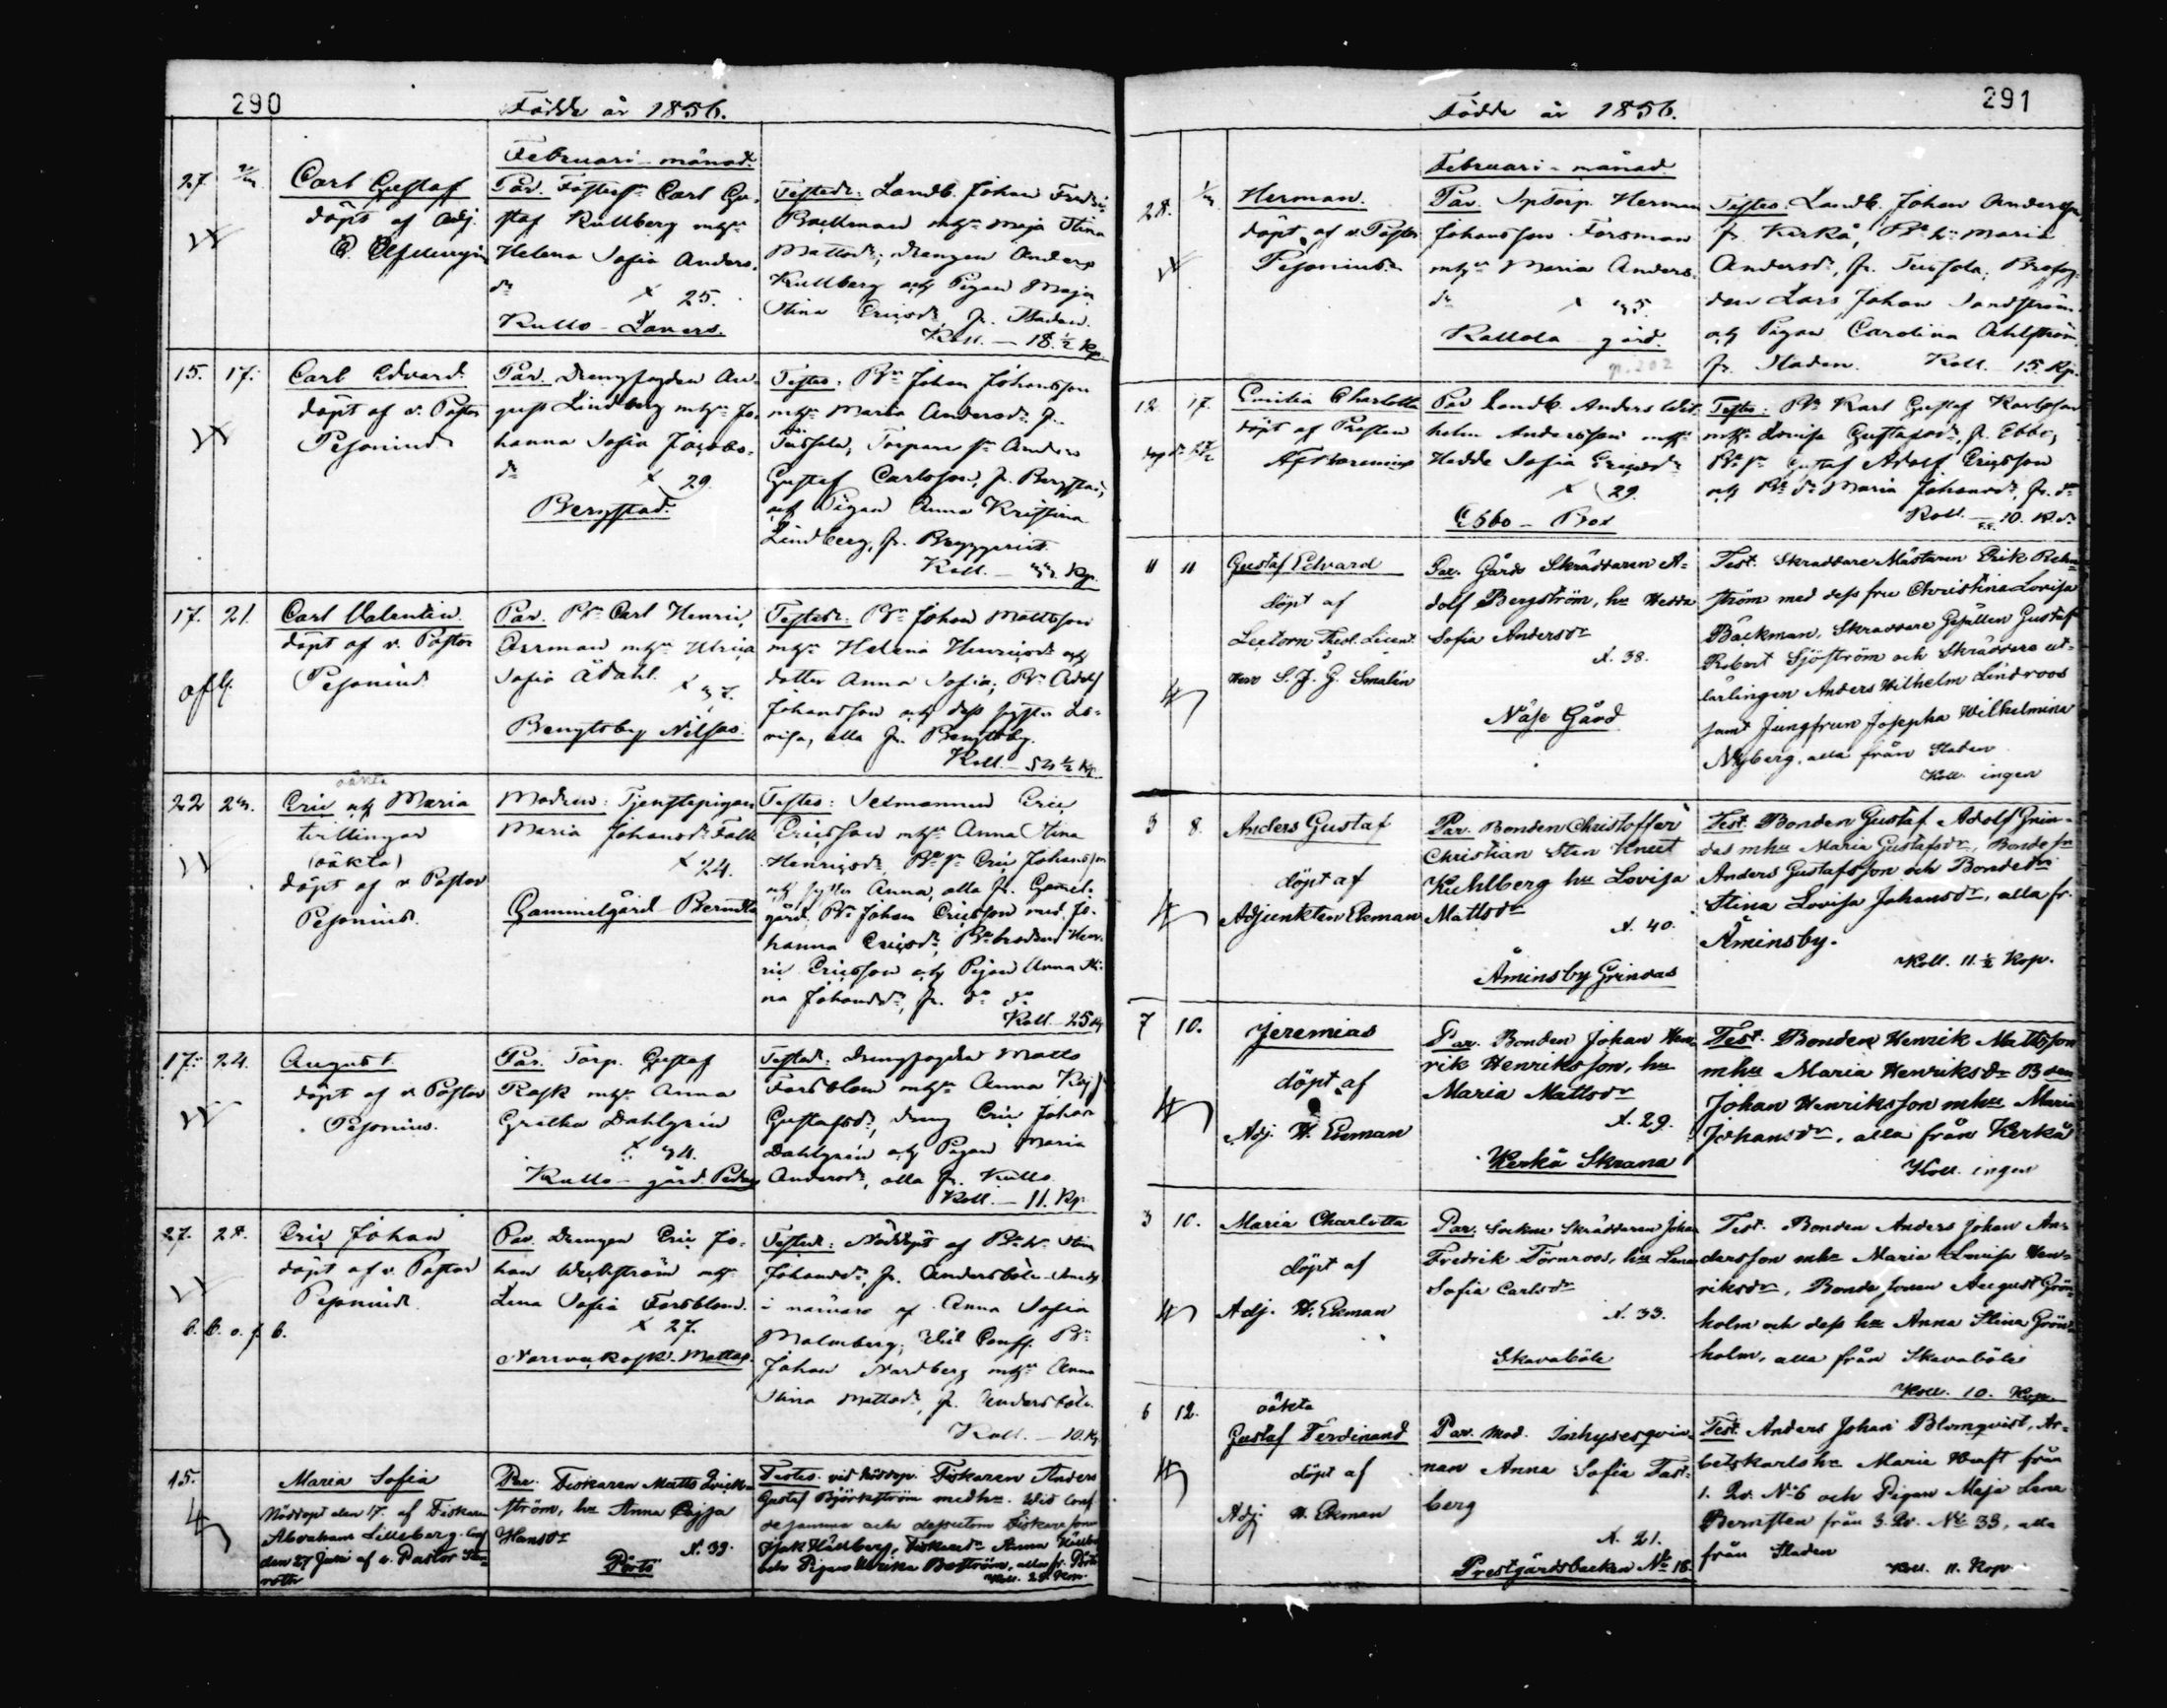 290
Födde år 1856.
Februari-månad.
27.
Carl Gustaf
döpt af Adj.
Par.
Carl Gu-
staf Kullberg mh
Helena Sofia Anders-
dr
x 25.
Kullo-Lavers.
Testes: Landb. Johan
mh Maja Stina
Mattsdr, drengen Anders
Kullberg och Pigan Maja
Stina Ericsdr, fr. Staden.
Koll. — 18 ½ kp
15. 17.
Carl Edvard
döpt af v. Pastor
Pesonius
Par. Drengfogden Au-
gust Lindberg mh Jo-
hanna Sofia Jacobs-
dr
x 29.
Bergstad.
Testes: Bn Johan Johansson
mh Maria Andersdr fr.
Tussola, Torpare sn Anders
Gustaf Carlsson, fr. Bergstad,
och Pigan Anna Kristina
Lindberg, fr.
Koll. — kp.
17. 21.
Carl Valentin
döpt af v. Pastor
Pesonius
Par. Bn Carl Henric
mh Ulrica
Sofia Ådahl.
Bengtsby Nilsas.
Testes: Bn Johan Mattsson
mh Helena Henricsdr och
dotter Anna Sofia, Bn Adolf
Johansson och dess syster Lo-
visa, alla fr. Bengtsby.
Koll. — kp
22
oäkta
Eric och Maria
tvillingar
(oäkta)
döpt af v. Pastor
Pesonius.
Modren: Tjenstepigan
Maria Johansdr Falk
x 24.
Gammelgård Berndts
Testes: Sexmannen Eric
Ericsson mh Anna Stina
Henricsdr, Bn sn Eric Johansson
och syster Anna, alla fr. Gamel-
gård. Bn Johan Ericsson med Jo-
hanna Ericsdr, Bn brodren Hen-
ric Ericsson och Pigan Anna Sti-
na Johansdr, fr. do do
Koll. — 25 kp
17. 24.
August
döpt af v. Pastor
Pesonius.
Par. Torp. Gustaf
Rask mh Anna
Gretha Dahlgrén
Kullo-gård
Testes: drengfogden Matts
Forsblom mh Anna Kajs
Gustafsdr, dreng Eric Johan
Dahlgrén och Pigan Maria
Andersdr, alla fr. Kullo
Koll. — 11. kp.
27. 28.
Eric Johan
döpt af v. Pastor
Pesonius.
Par. Drengen Eric Jo-
han Weckström mh
Lena Sofia Forsblom.
x 27.
Norrveckosk-Mattas.
Testes: Nöddöpt af Bn h. Stina
Johansdr, fr. Andersböle
i närvaro af Anna Sofia
Malmberg; Vid Conff. Bn
Johan Nordberg mh Anna
Stina Mattsdr, fr. Andersböle.
Koll. — 10. kp
15.
Maria Sofia
Nöddöpt den 17. af Fiskaren
Abraham Lilleberg. Conf
den 27 Juni af v. Pastor
Par. Fiskaren Matts
ström, hu Anna Cajsa
Hansdr
x. 39.
Pörtö
Testes. vid Nöddop. Fiskaren Anders
Gustaf Björkström med hu. Wid Conf
desamma och dessutom Fiskare son
Isak Hällberg, Fiskaredr Anna
och Pigan Ulrika Boström, alla fr. Pörtö
Koll. 28 Kop.
291
Födde år 1856.
Februari-månad.
28.
Herman.
döpt af v. Pastor
Pesonius
Par. Sptorp. Herman
Johansson Forsman
mh Maria Anders-
dr
Kallola gård.
p. 202
Testes: Landb. Johan Andersson
fr. Kerko, Bn hu Maria
Andersdr, fr. Tussola; Brofog-
den Lars Johan Sandström
och Pigan Carolina Ahlström
fr. Staden. Koll. 15 Kp.
12. 17.
Emilia Charlotta
döpt af Prosten
Par Landb. Anders Wil-
helm Andersson mh
Hedda Sofia Ericsdr
x 29.
Ebbo-Box
Testes: Bn Karl Gustaf Karlsson
mh Lovisa Gustafsdr, fr. Ebbo,
Bn sn Gustaf Adolf Ericsson
och Bn dr Maria Johansdr, fr. do
Koll. — 10.
11 11
Gustaf Edvard
döpt af
Lectorn Theol. Licent.
Herr S. J. G. Smalén
Par. Gårds Skräddaren A-
dolf Bergström, hu Hedda
Sofia Andersdr
x. 38.
Näse Gård
Test. Skräddare Mästaren Erik Rehn-
ström med dess fru Christina Lovisa
Bäckman, Skräddare Gesällen Gustaf
Robert Sjöström och Skräddare ut-
lärlingen Anders Wilhelm Lindroos
samt Jungfrun Josepha Wilhelmina
Nyberg, alla från Staden
Koll. ingen
3 8.
Anders Gustaf
döpt af
Adjunkten Ekman
Par. Bonden Christoffer
Christian Sten Knut
Kuhlberg hu Lovisa
Mattsdr
x. 40.
Åminsby Grindas
Test. Bonden Gustaf Adolf Grin-
das mhu Maria Gustafsdr, Bonde sn
Anders Gustafsson och Bondedr
Stina Lovisa Johansdr, alla fr.
Åminsby.
Koll. 11 ½ Kop.
7 10.
Jeremias
döpt af
Adj. W. Ekman
Par. Bonden Johan Hen-
rik Henriksson, hu
Maria Mattsdr
x. 29.
Kerko Skrana
Test. Bonden Henrik Mattsson
mhu Maria Henriksdr Bden
Johan Henriksson mhu Maria
Johansdr, alla från Kerko
Koll. ingen
3 10.
Maria Charlotta
döpt af
Adj. W. Ekman
Par. Sockne Skräddaren Johan
Fredrik Törnroos, hu Lena
Sofia Carlsdr
x. 33.
Skavaböle
Test. Bonden Anders Johan An-
dersson mhu Maria Lovisa Hen-
riksdr, Bonde sonen August Grön-
holm och dess hu Anna Stina Grön-
holm, alla från Skavaböle
Koll. 10. Kop.
6 12.
oäkta
Gustaf Ferdinand
döpt af
Adj. W. Ekman
Par. Mod. Inhysesqvin-
nan Anna Sofia Tast-
berg
x. 21.
Prestgårdsbacken No 18.
Test. Anders Johan Blomqvist, Ar-
betskarls hu Maria Kraft från
1. Qv. No 6 och Pigan Maja Lena
från 3. Qv. No 33, alla
från Staden
Koll. 11. Kop